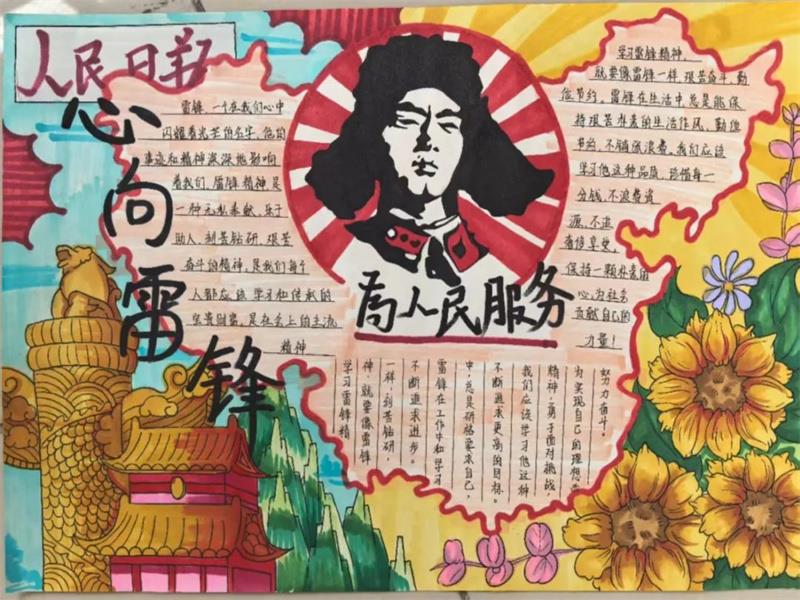 人民日报
心向雷锋
雷锋,一个在我们心中
闪耀着光芒的名字,他的
事迹和精神深深地影响
着我们,雷锋精神是
一种无私奉献、乐于
助人、刻苦钻研、艰苦
奋斗的精神,是我们每个
人都应该学习和传承的
宝贵财富,是在社会上的主流
精神
为人民服务
学习雷锋精神,
就要像雷锋一样,艰苦奋斗,勤
俭节约,雷锋在生活中总是能保
持艰苦朴素的生活作风,勤俭
节约,不铺张浪费,我们应该
学习他这种品质,珍惜每一
分钱,不浪费资
源,不追
奢侈享受,
保持一颗朴素的
心,为社会
贡献自己的
力量!
学习雷锋精
神,就要像雷锋
一样,刻苦钻研,
不断追求进步。
雷锋在工作中和学习
中,总是严格要求自己,
不断追求更高的目标。
我们应该学习他这种
精神,勇于面对挑战,
为实现自己的理想
努力奋斗。